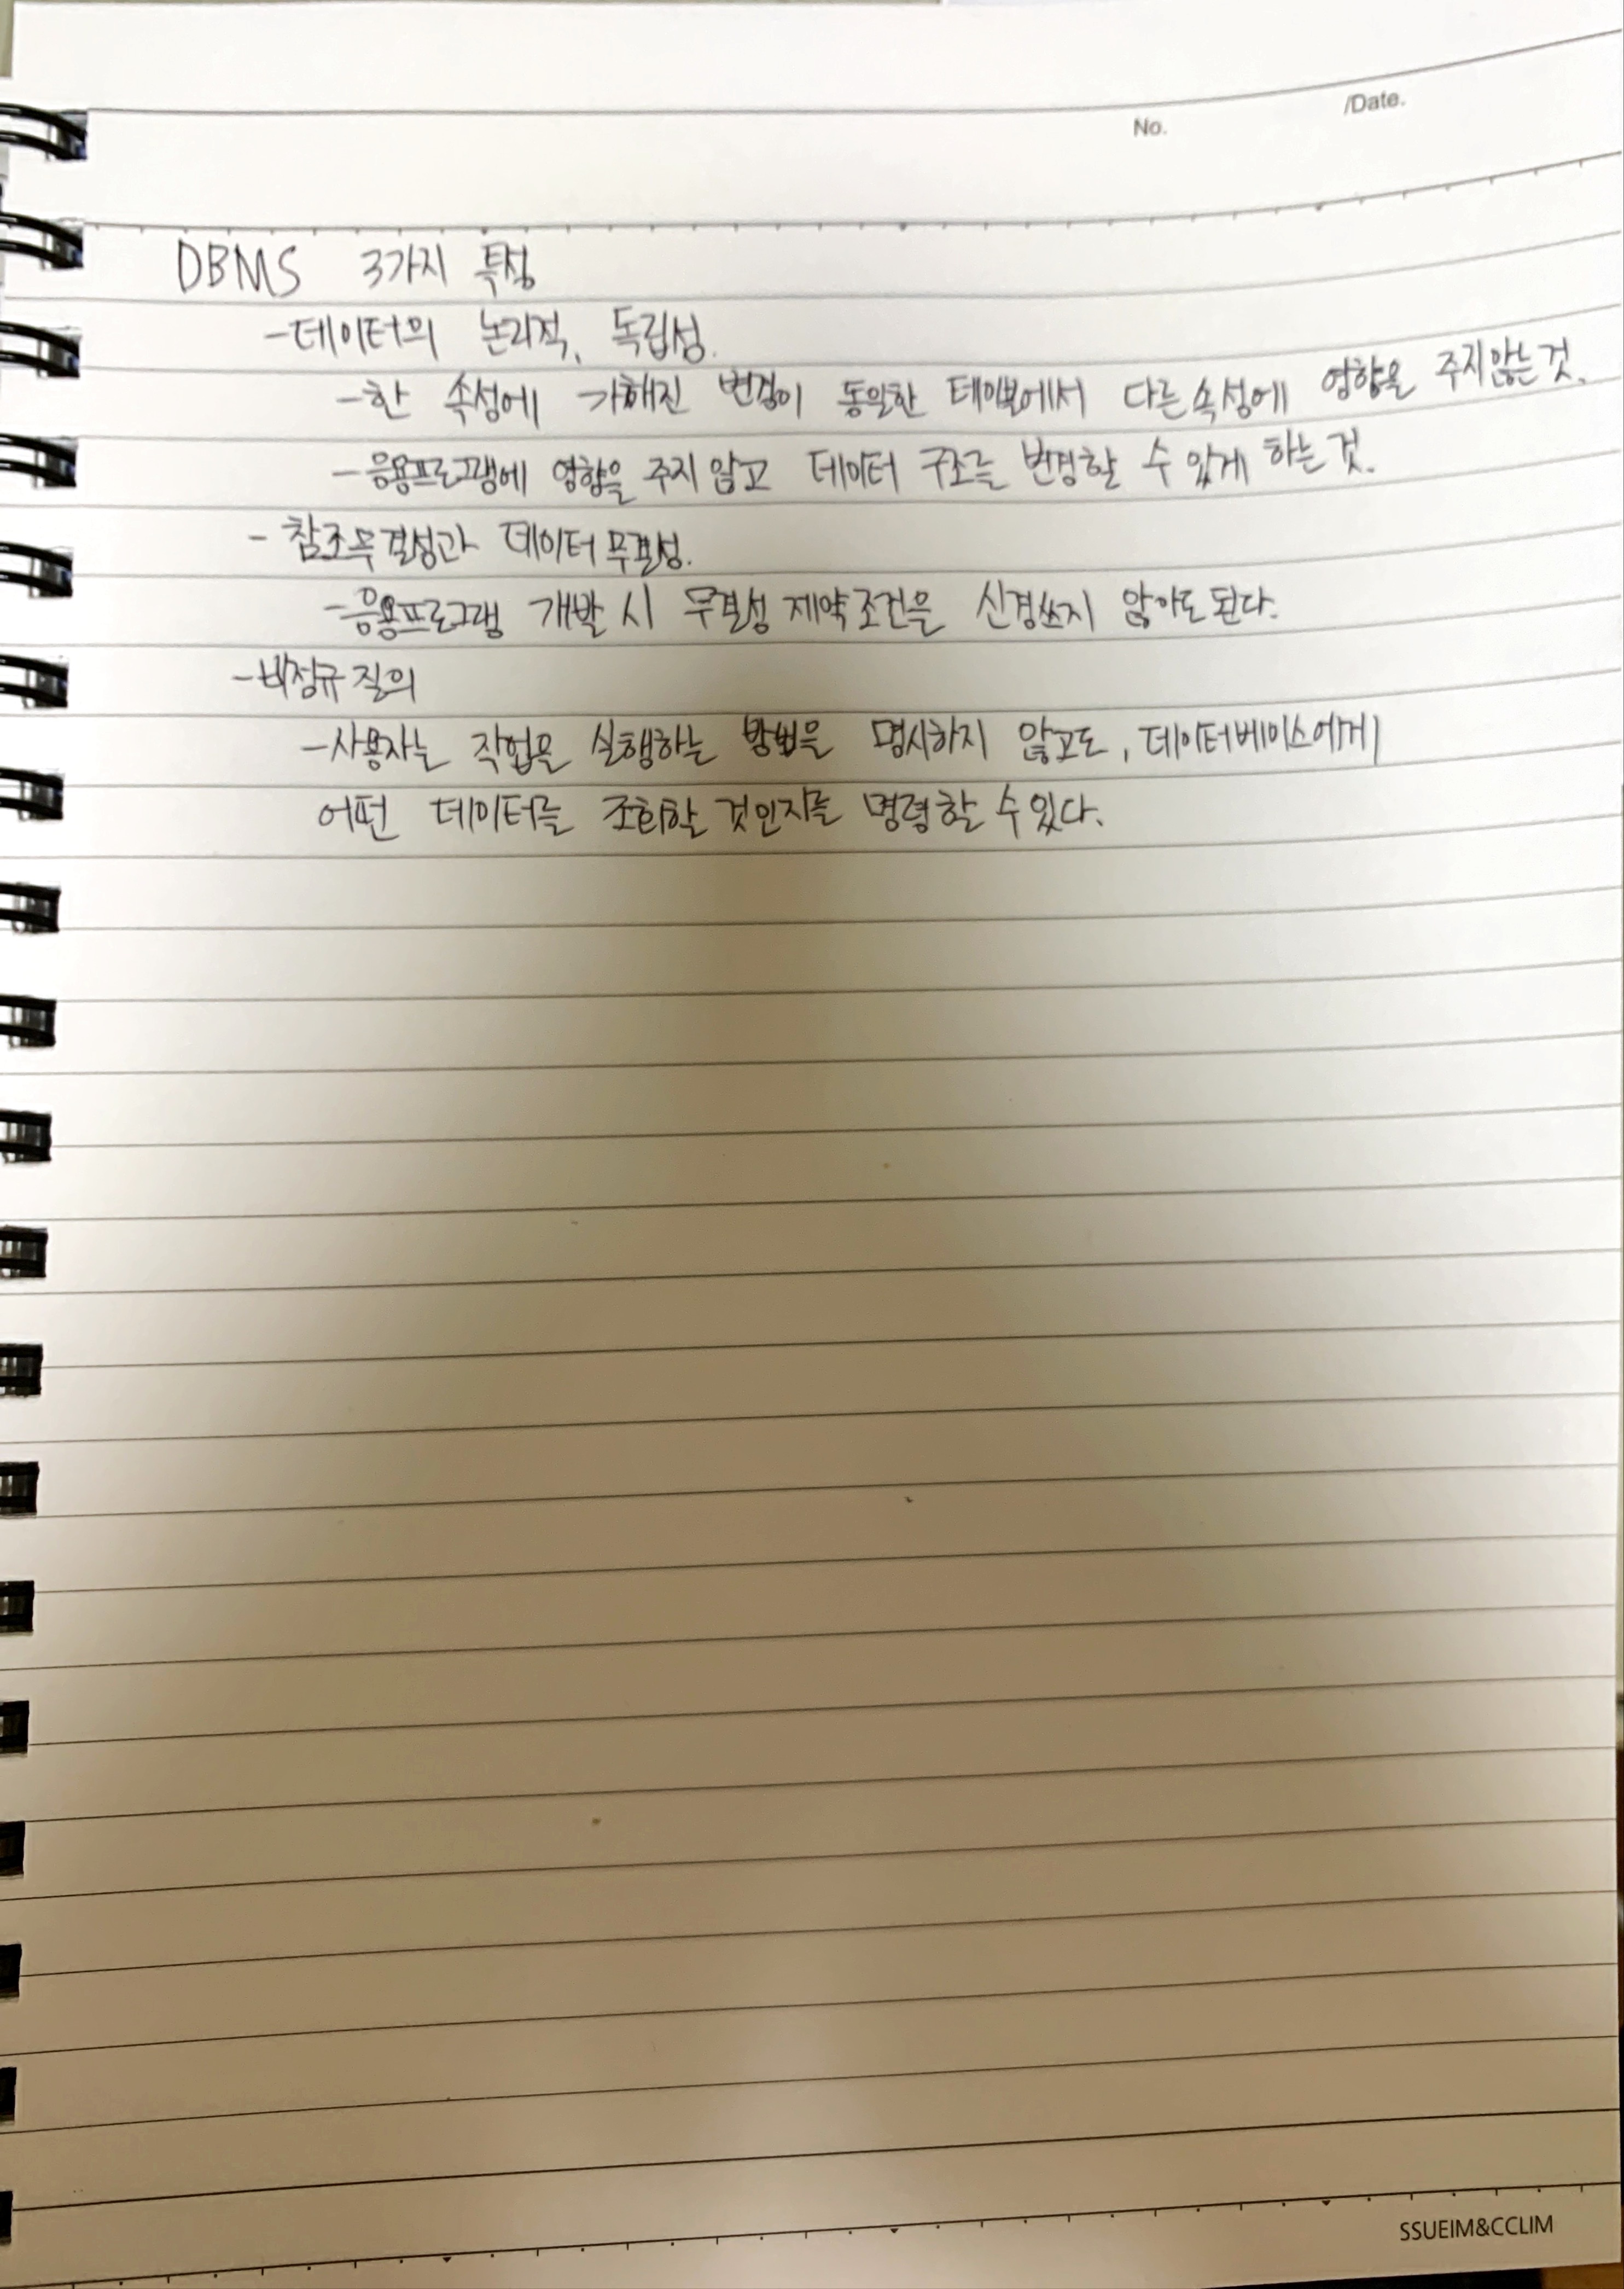 No.
/Date.
DBMS 3가지 특징
-데이터의 논리적, 독립성.
-한 속성에 가해진 변경이 동일한 테이블에서 다른 속성에 영향을 주지않는 것.
-응용프로그램에 영향을 주지 않고 데이터 구조를 변경할 수 있게 하는 것.
- 참조무결성과 데이터 무결성.
-응용프로그램 개발 시 무결성 제약조건을 신경쓰지 않아도 된다.
-비정규 질의
-사용자는 작업을 실행하는 방법을 명시하지 않고도, 데이터베이스에게
어떤 데이터를 조회할 것인지를 명령할 수 있다.
SSUEIM&CCLIM